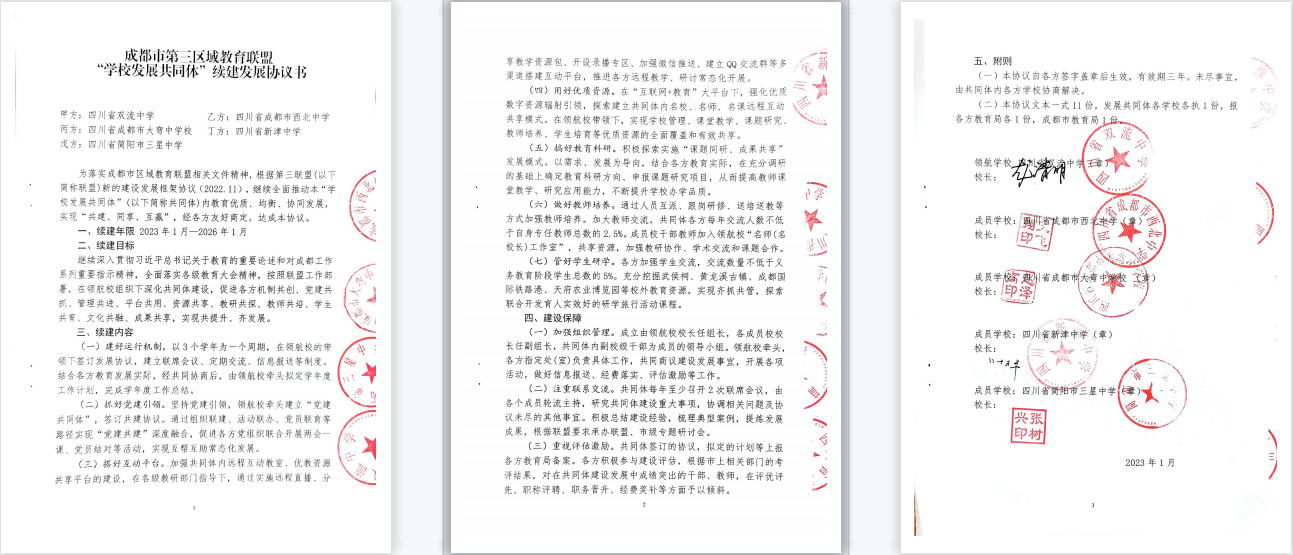 成都市第三区域教育联盟
“学校发展共同体”续建发展协议书
甲方：四川省双流中学 乙方：四川省成都市西北中学
丙方：四川省成都市大弯中学校 丁方：四川省新津中学
戊方：四川省简阳市三星中学
为落实成都市区域教育联盟相关文件精神，根据第三联盟(以下
简称联盟)新的建设发展框架协议(2022.11)，继续全面推动本“学
校发展共同体”(以下简称共同体)内教育优质、均衡、协同发展，
实现“共建、同享、互赢”，经各方友好商定，达成本协议。
一、续建年限 2023年1月—2026年1月
二、续建目标
继续深入贯彻习近平总书记关于教育的重要论述和对成都工作
系列重要指示精神，全面落实各级教育大会精神，按照联盟工作部
署，在领航校组织下深化共同体建设，促进各方机制共创、党建共
抓、管理共进、平台共用、资源共享、教研共探、教师共培、学生
共育、文化共融、成果共享，实现共提升、齐发展。
三、续建内容
（一）建好运行机制。以3个学年为一个周期，在领航校的带
领下签订发展协议，建立联席会议、定期交流、信息报送等制度。
结合各方教育发展实际，经共同协商后，由领航校牵头拟定学年度
工作计划，完成学年度工作总结。
（二）抓好党建引领。坚持党建引领，领航校牵头建立“党建
共同体”，签订共建协议。通过组织联建、活动联办、党员联育等
路径实现“党建共建”深度融合，促进各方党组织联合开展两会一
课、党员结对等活动，实现互帮互助常态化发展。
（三）搭好互动平台。加强共同体内远程互动教室、优教资源
共享平台的建设，在各级教研部门指导下，通过实施远程直播、分
1
享教学资源包、开设录播专区、加强微信推送、建立QQ交流群等多
渠道搭建互动平台，推进各方远程教学、研讨常态化开展。
（四）用好优质资源。在“互联网+教育”大平台下，强化优质
数字资源辐射引领，探索建立共同体内名校、名师、名课远程互动
共享模式。在领航校带领下，实现学校管理、课堂教学、课题研究、
教师培养、学生培育等优质资源的全面覆盖和有效共享。
（五）搞好教育科研。积极探索实施“课题同研、成果共享”
发展模式。以需求、发展为导向，结合各方教育实际，在充分调研
的基础上确定教育科研方向、申报课题研究项目，从而提高教师课
堂教学、研究应用能力，不断提升学校办学品质。
（六）做好教师培养。通过人员互派、跟岗研修、送培送教等
方式加强教师培养。加大教师交流，共同体各方每年交流人数不低
于自专任教师总数的2.5%。成员校干部教师加入领航校“名师(名
校长)工作室”，共享资源，加强教研协作、学术交流和课题合作。
（七）管好学生研学。各方加强学生交流，交流数量不低于义
务教育阶段学生总数的5%。充分挖掘武侯祠、黄龙溪古镇、成都国
际铁路港、天府农业博览园等校外教育资源，实现齐抓共管，探索
联合开发育人实效好的研学旅行活动课程。
四、建设保障
（一）加强组织管理。成立由领航校校长任组长，各成员校校
长任副组长，共同体内副校级干部为成员的领导小组。领航校牵头，
各方指定处(室)负责具体工作，共同商议建设发展事宜，开展各项
活动，做好信息报送、经费落实、评估激励等工作。
（二）注重联系交流。共同体每年至少召开2次联席会议，由
各个成员轮流主持，研究共同体建设重大事项，协调相关问题及协
议未尽的其他事宜。积极总结建设经验，梳理典型案例，提炼发展
成果，根据联盟要求承办联盟、市级专题研讨会。
（三）重视评估激励。共同体签订的协议，拟定的计划等上报
各方教育局备案。各方积极参与建设评估，根据市上相关部门的考
评结果，对在共同体建设发展中成绩突出的干部、教师，在评优评
先、职称评聘、职务晋升、经费奖补等方面予以倾斜。
2
五、附则
（一）本协议自各方签字盖章后生效，有效期三年。未尽事宜，
由共同体内各方学校协商解决。
（二）本协议文本一式11份，发展共同体各学校各执1份，报
各方教育局各1份，成都市教育局1份。
领航学校：四川省双流中学（章）
校长：
成员学校：四川省成都市西北中学（章）
校长：
成员学校：四川省成都市大弯中学校（章）
校长：
成员学校：四川省新津中学（章）
校长：
成员学校：四川省简阳市三星中学（章）
校长：
张树
兴印
2023年1月
3